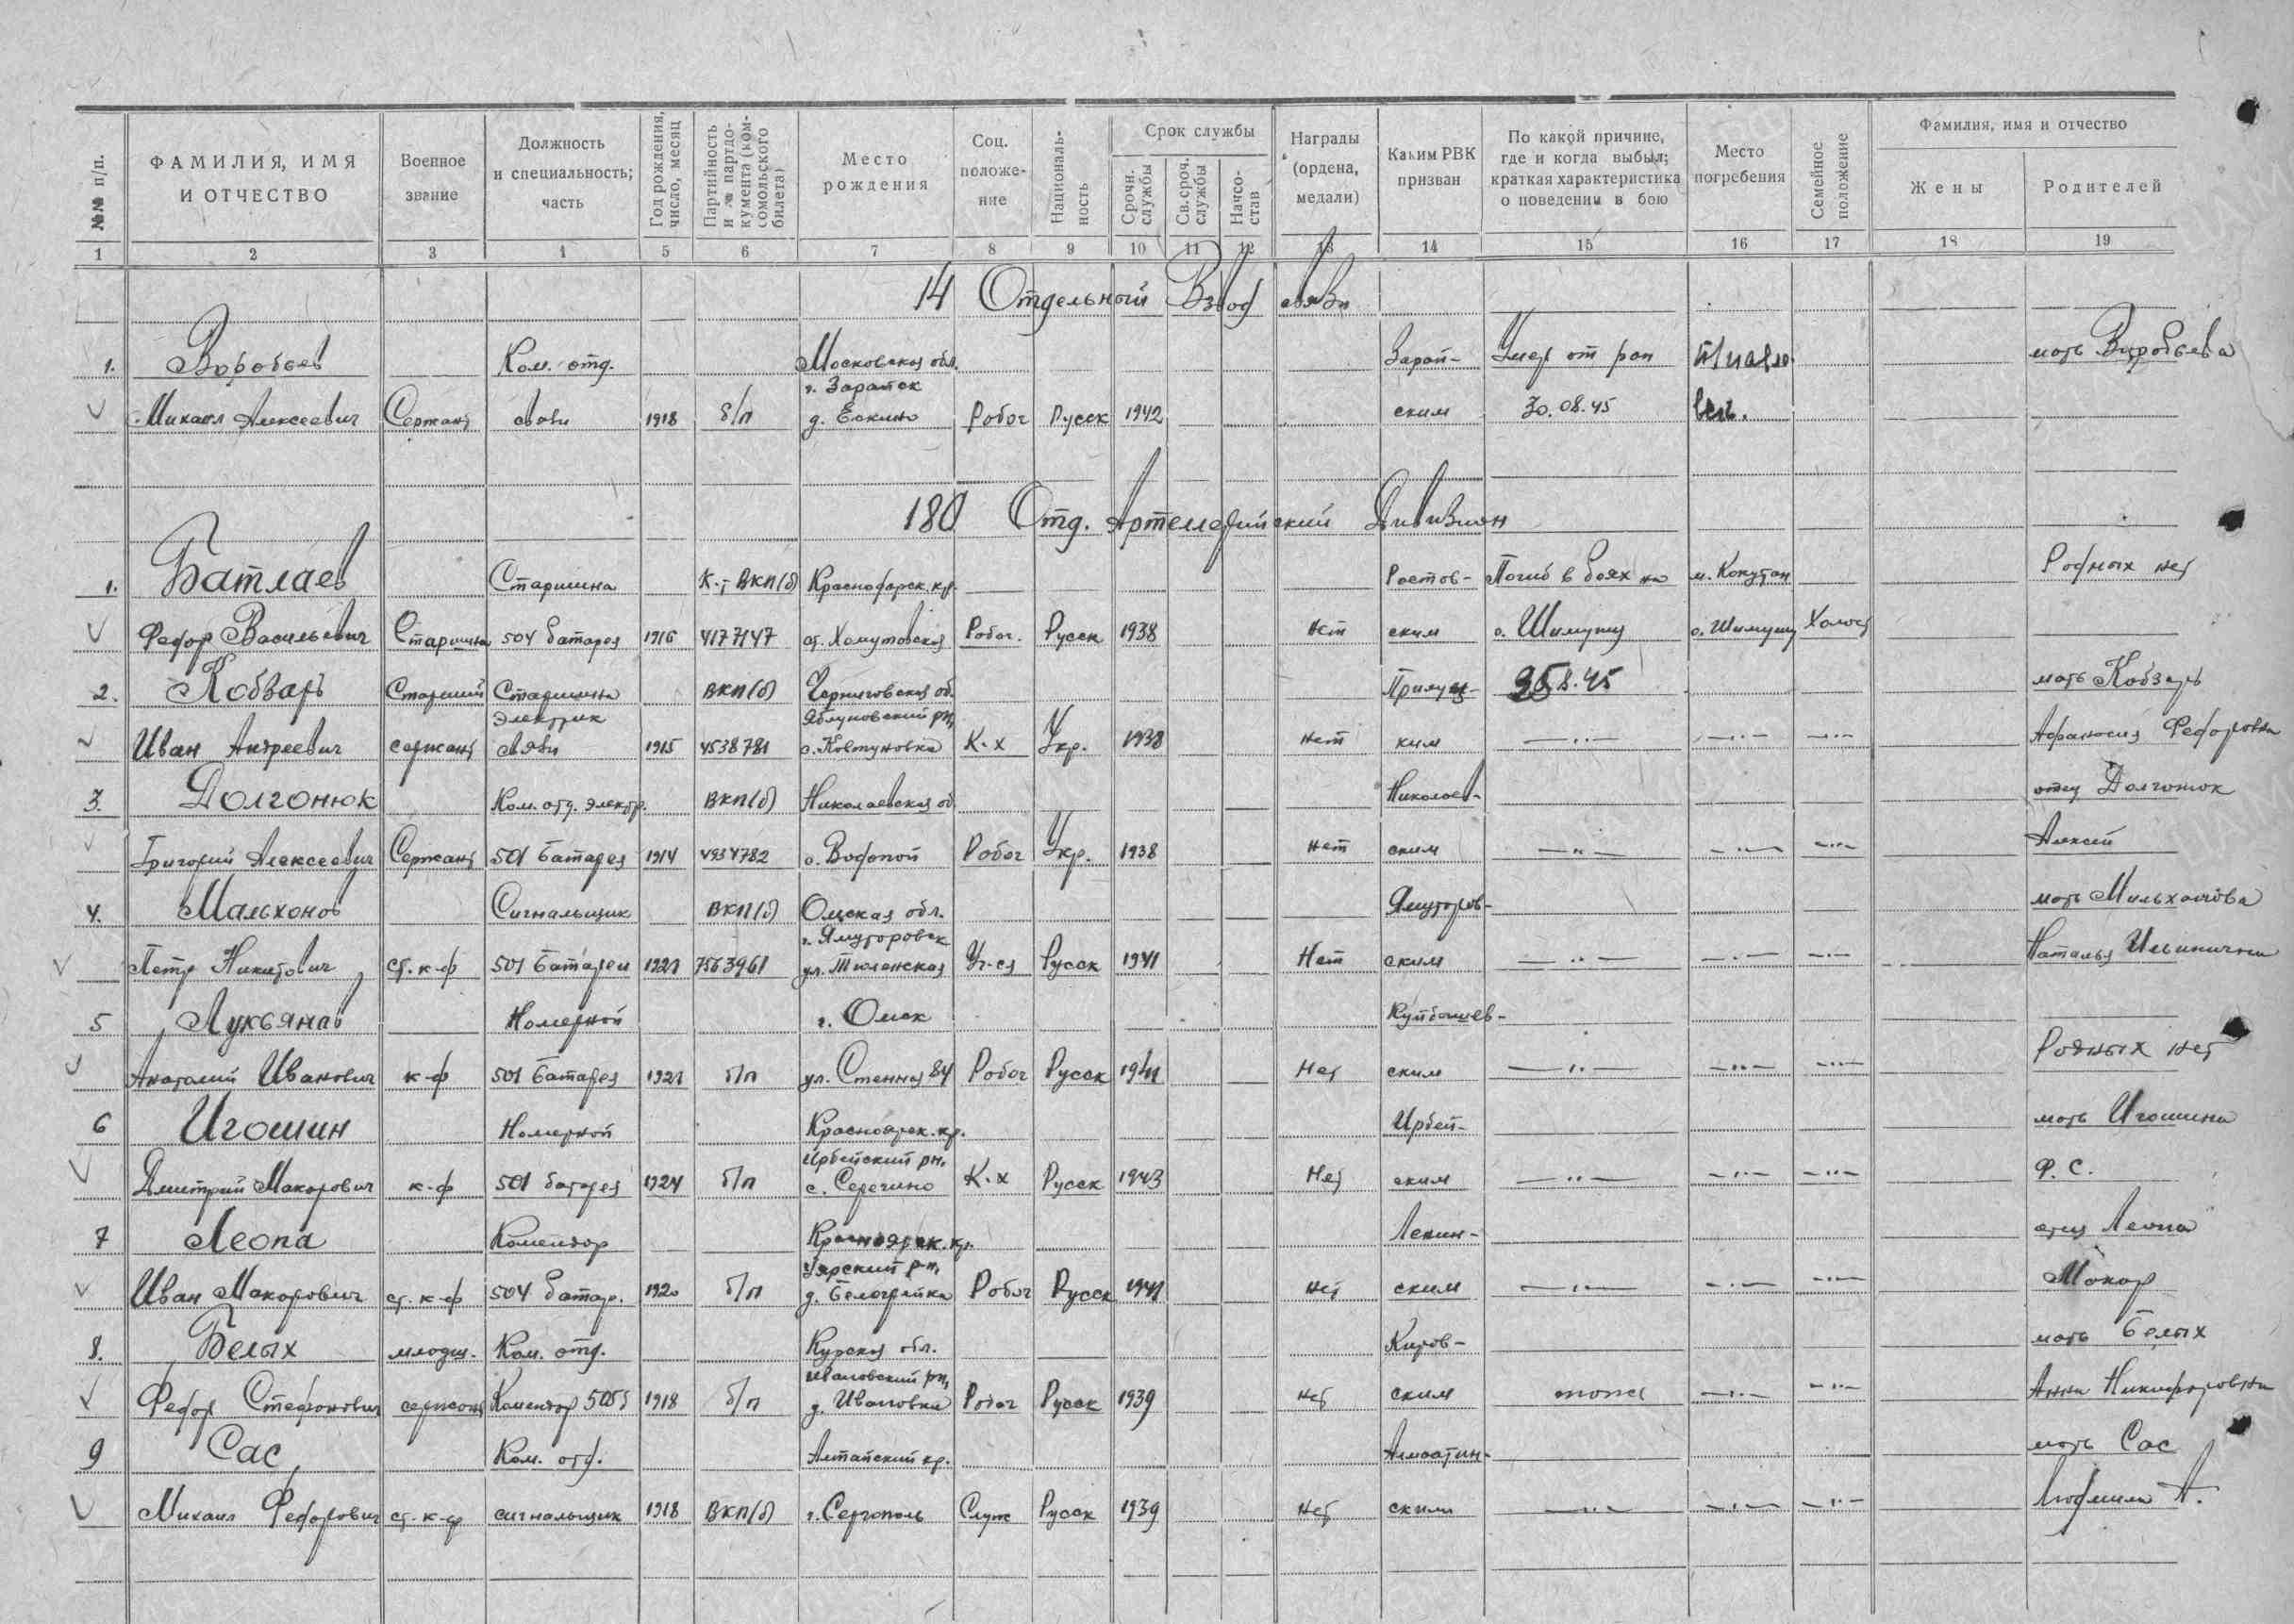 №№ п/п. ФАМИЛИЯ, ИМЯ И ОТЧЕСТВО Военное звание Должность и специальность; часть Год рождения, число, месяц Партийность и № партдокумента (комсомольского билета) Место рождения Соц. положение Национальность Срок службы Срочн. службы Св.сроч. службы Начсостав Награды (ордена, медали) Каким РВК призван По какой причине, где и когда выбыл; краткая характеристика о поведении в бою Место погребения Семейное положение Фамилия, имя и отчество Жены Родителей
1 2 3 4 5 6 7 8 9 10 11 12 13 14 15 16 17 18 19
14 Отдельный Взвод связи
1. Воробьев Ком. отд. Московская обл. Зарай- Умер от ран мать Воробьева
г. Зарайск
Михаил Алексеевич Сержант связи 1918 б/п д. Ескино Рабоч Русск 1942 ским 30.08.45
180 Отд. Артеллерийский Дивизион
1. Батлаев Старшина К.-ВКП(б) Краснодарск. кр. Ростов- Погиб в боях на м. Кокутан Родных нет
Федор Васильевич Старшина 504 батарея 1916 4177147 ст. Хомутовская Рабоч. Русск 1938 Нет ским о. Шимушу о. Шимушу Холост
2. Кобзарь Старший Старшина ВКП(б) Черниговская об. Прилуц- 8.45 мать Кобзарь
электрик Яблуновский рн,
Иван Андреевич сержант связи 1915 4538781 с. Ковтуновка К-х Укр. 1938 нет ким —··— —··— —··— Афанасия Федоровна
3. Долгонюк Ком. отд. электр. ВКП(б) Николаевская об. Николаев- отец Долгонюк
Григорий Алексеевич Сержант 501 батарея 1914 4934782 с. Водопой Рабоч Укр. 1938 Нет ским —··— —··— —··— Алексей
4. Мальханов Сигнальщик ВКП(б) Омская обл. Ялуторов- мать Мальханова
г. Ялуторовск
Петр Никитович ст. к-ф 501 батареи 1921 7563961 ул. Тюменская Уч-ся Русск 1941 Нет ским —··— —··— —··— Наталья Ильинична
5 Лукьянов Номерной г. Омск Куйбышев-
Анатолий Иванович к-ф 501 батарея 1921 б/п ул. Степная 84 Рабоч Русск 1941 Нет ским —··— —··— —··— Родных нет
6 Игошин Номерной Красноярск. кр. Ирбей- мать Игошина
Ирбейский рн,
Дмитрий Макарович к-ф 501 батарея 1924 б/п с. Серечино К-х Русск 1943 Нет ским —··— —··— —··— Ф. С.
7 Леопа Комендор Красноярск. кр. Ленин- отец Леопа
Уярский р-н,
Иван Макарович ст. к-ф 504 батар. 1920 б/п д. Белогрейка Рабоч Русск 1941 нет ским —··— —··— —··— Макар
8. Белых младш. Ком. отд. Курская обл. Киров- мать Белых
Ивановский рн,
Федор Стефанович сержант Комендор 1918 б/п д. Ивановка Рабоч Русск 1939 нет ским —··— —··— Анна Никифоровна
9 Сас Ком. отд. Алтайский кр. Алмаатин- мать Сас
Михаил Федорович ст. к-ф сигнальщик 1918 ВКП(б) г. Сергополь Служ Русск 1939 нет ским —··— —··— —··— Людмила А.